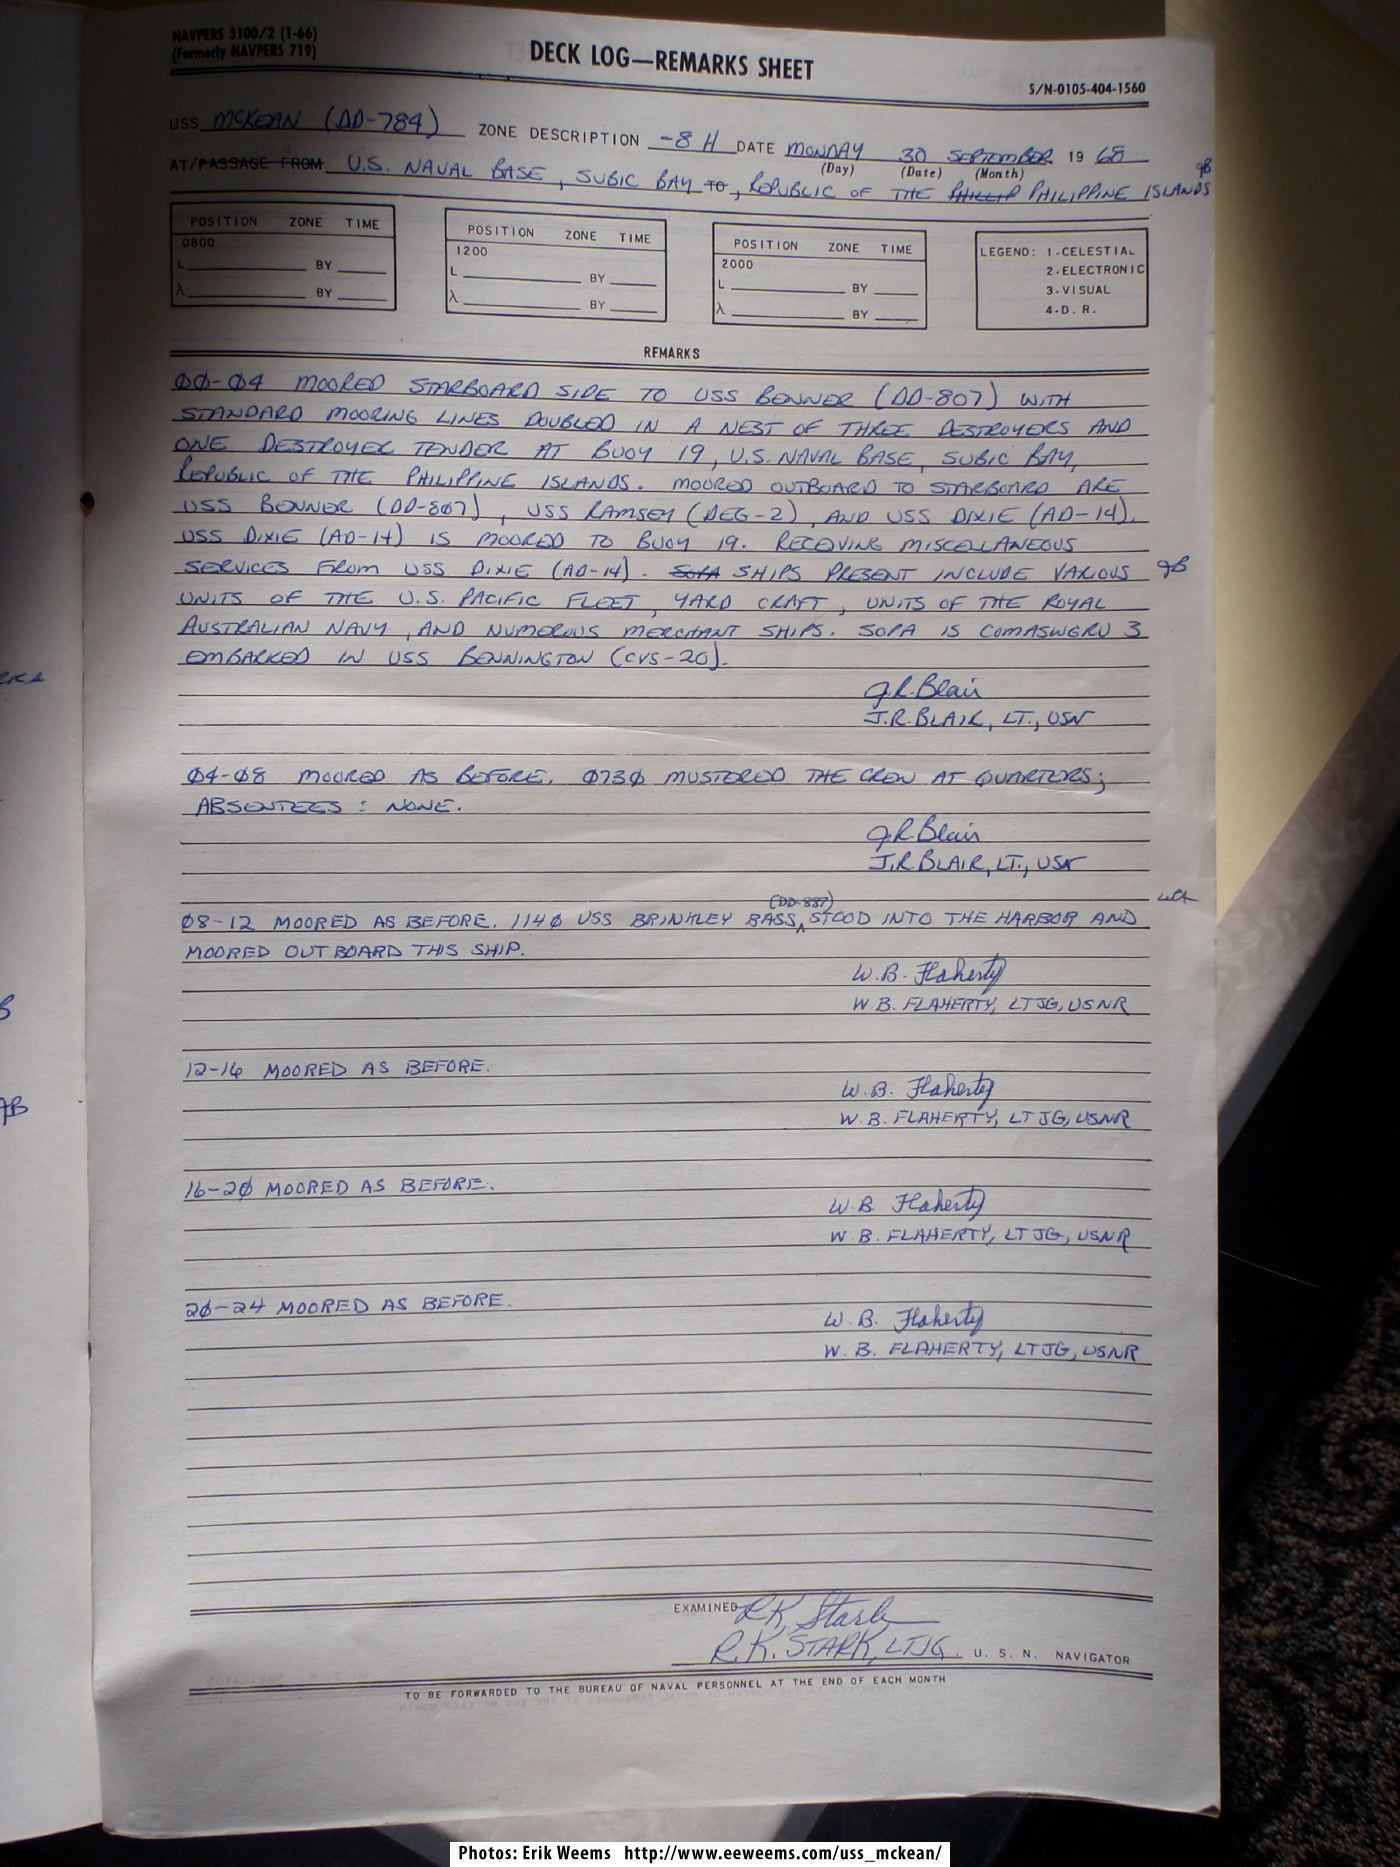 NAVPERS 3100/2 (1-66)
(Formerly NAVPERS 719)
DECK LOG—REMARKS SHEET
S/N-0105-404-1560
USS MCKEAN (DD-784) ZONE DESCRIPTION -8 H DATE MONDAY 30 SEPTEMBER 19 68
(Day) (Date) (Month)
AT/PASSAGE FROM U.S. NAVAL BASE, SUBIC BAY TO, REPUBLIC OF THE PHILLIP PHILIPPINE ISLANDS
POSITION ZONE TIME
0800
L BY
λ BY
POSITION ZONE TIME
1200
L BY
λ BY
POSITION ZONE TIME
2000
L BY
λ BY
LEGEND: 1-CELESTIAL
2-ELECTRONIC
3-VISUAL
4-D. R.
REMARKS
00-04 MOORED STARBOARD SIDE TO USS BENNER (DD-807) WITH
STANDARD MOORING LINES DOUBLED IN A NEST OF THREE DESTROYERS AND
ONE DESTROYER TENDER AT BUOY 19, U.S. NAVAL BASE, SUBIC BAY,
REPUBLIC OF THE PHILIPPINE ISLANDS. MOORED OUTBOARD TO STARBOARD ARE
USS BENNER (DD-807), USS RAMSEY (DEG-2), AND USS DIXIE (AD-14).
USS DIXIE (AD-14) IS MOORED TO BUOY 19. RECEIVING MISCELLANEOUS
SERVICES FROM USS DIXIE (AD-14). SOPA SHIPS PRESENT INCLUDE VARIOUS
UNITS OF THE U.S. PACIFIC FLEET, YARD CRAFT, UNITS OF THE ROYAL
AUSTRALIAN NAVY, AND NUMEROUS MERCHANT SHIPS. SOPA IS COMASWGRU 3
EMBARKED IN USS BENNINGTON (CVS-20).
J.R. Blair
J.R. BLAIR, LT., USN
04-08 MOORED AS BEFORE. 0730 MUSTERED THE CREW AT QUARTERS;
ABSENTEES: NONE.
J.R. Blair
J.R. BLAIR, LT., USN
(DD-887)
08-12 MOORED AS BEFORE. 1140 USS BRINKLEY BASS, STOOD INTO THE HARBOR AND
MOORED OUTBOARD THIS SHIP.
W.B. Flaherty
W.B. FLAHERTY, LTJG, USNR
12-16 MOORED AS BEFORE.
W.B. Flaherty
W.B. FLAHERTY, LTJG, USNR
16-20 MOORED AS BEFORE.
W.B. Flaherty
W.B. FLAHERTY, LTJG, USNR
20-24 MOORED AS BEFORE.
W.B. Flaherty
W.B. FLAHERTY, LTJG, USNR
EXAMINED R.K. Stark
R.K. STARK, LTJG. U. S. N. NAVIGATOR
TO BE FORWARDED TO THE BUREAU OF NAVAL PERSONNEL AT THE END OF EACH MONTH
Photos: Erik Weems http://www.eeweems.com/uss_mckean/